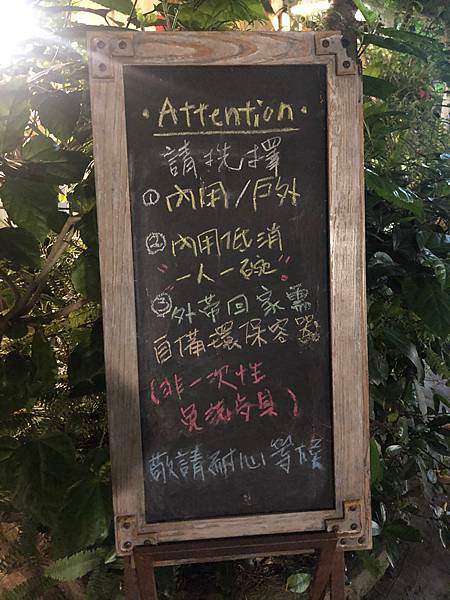 ·Attention·
請洗擇
①內用/戶外
②內用低消
"一人一碗"
③外帶回家需
自備環保容器
(非一次性
免洗餐具)
敬請耐心等候